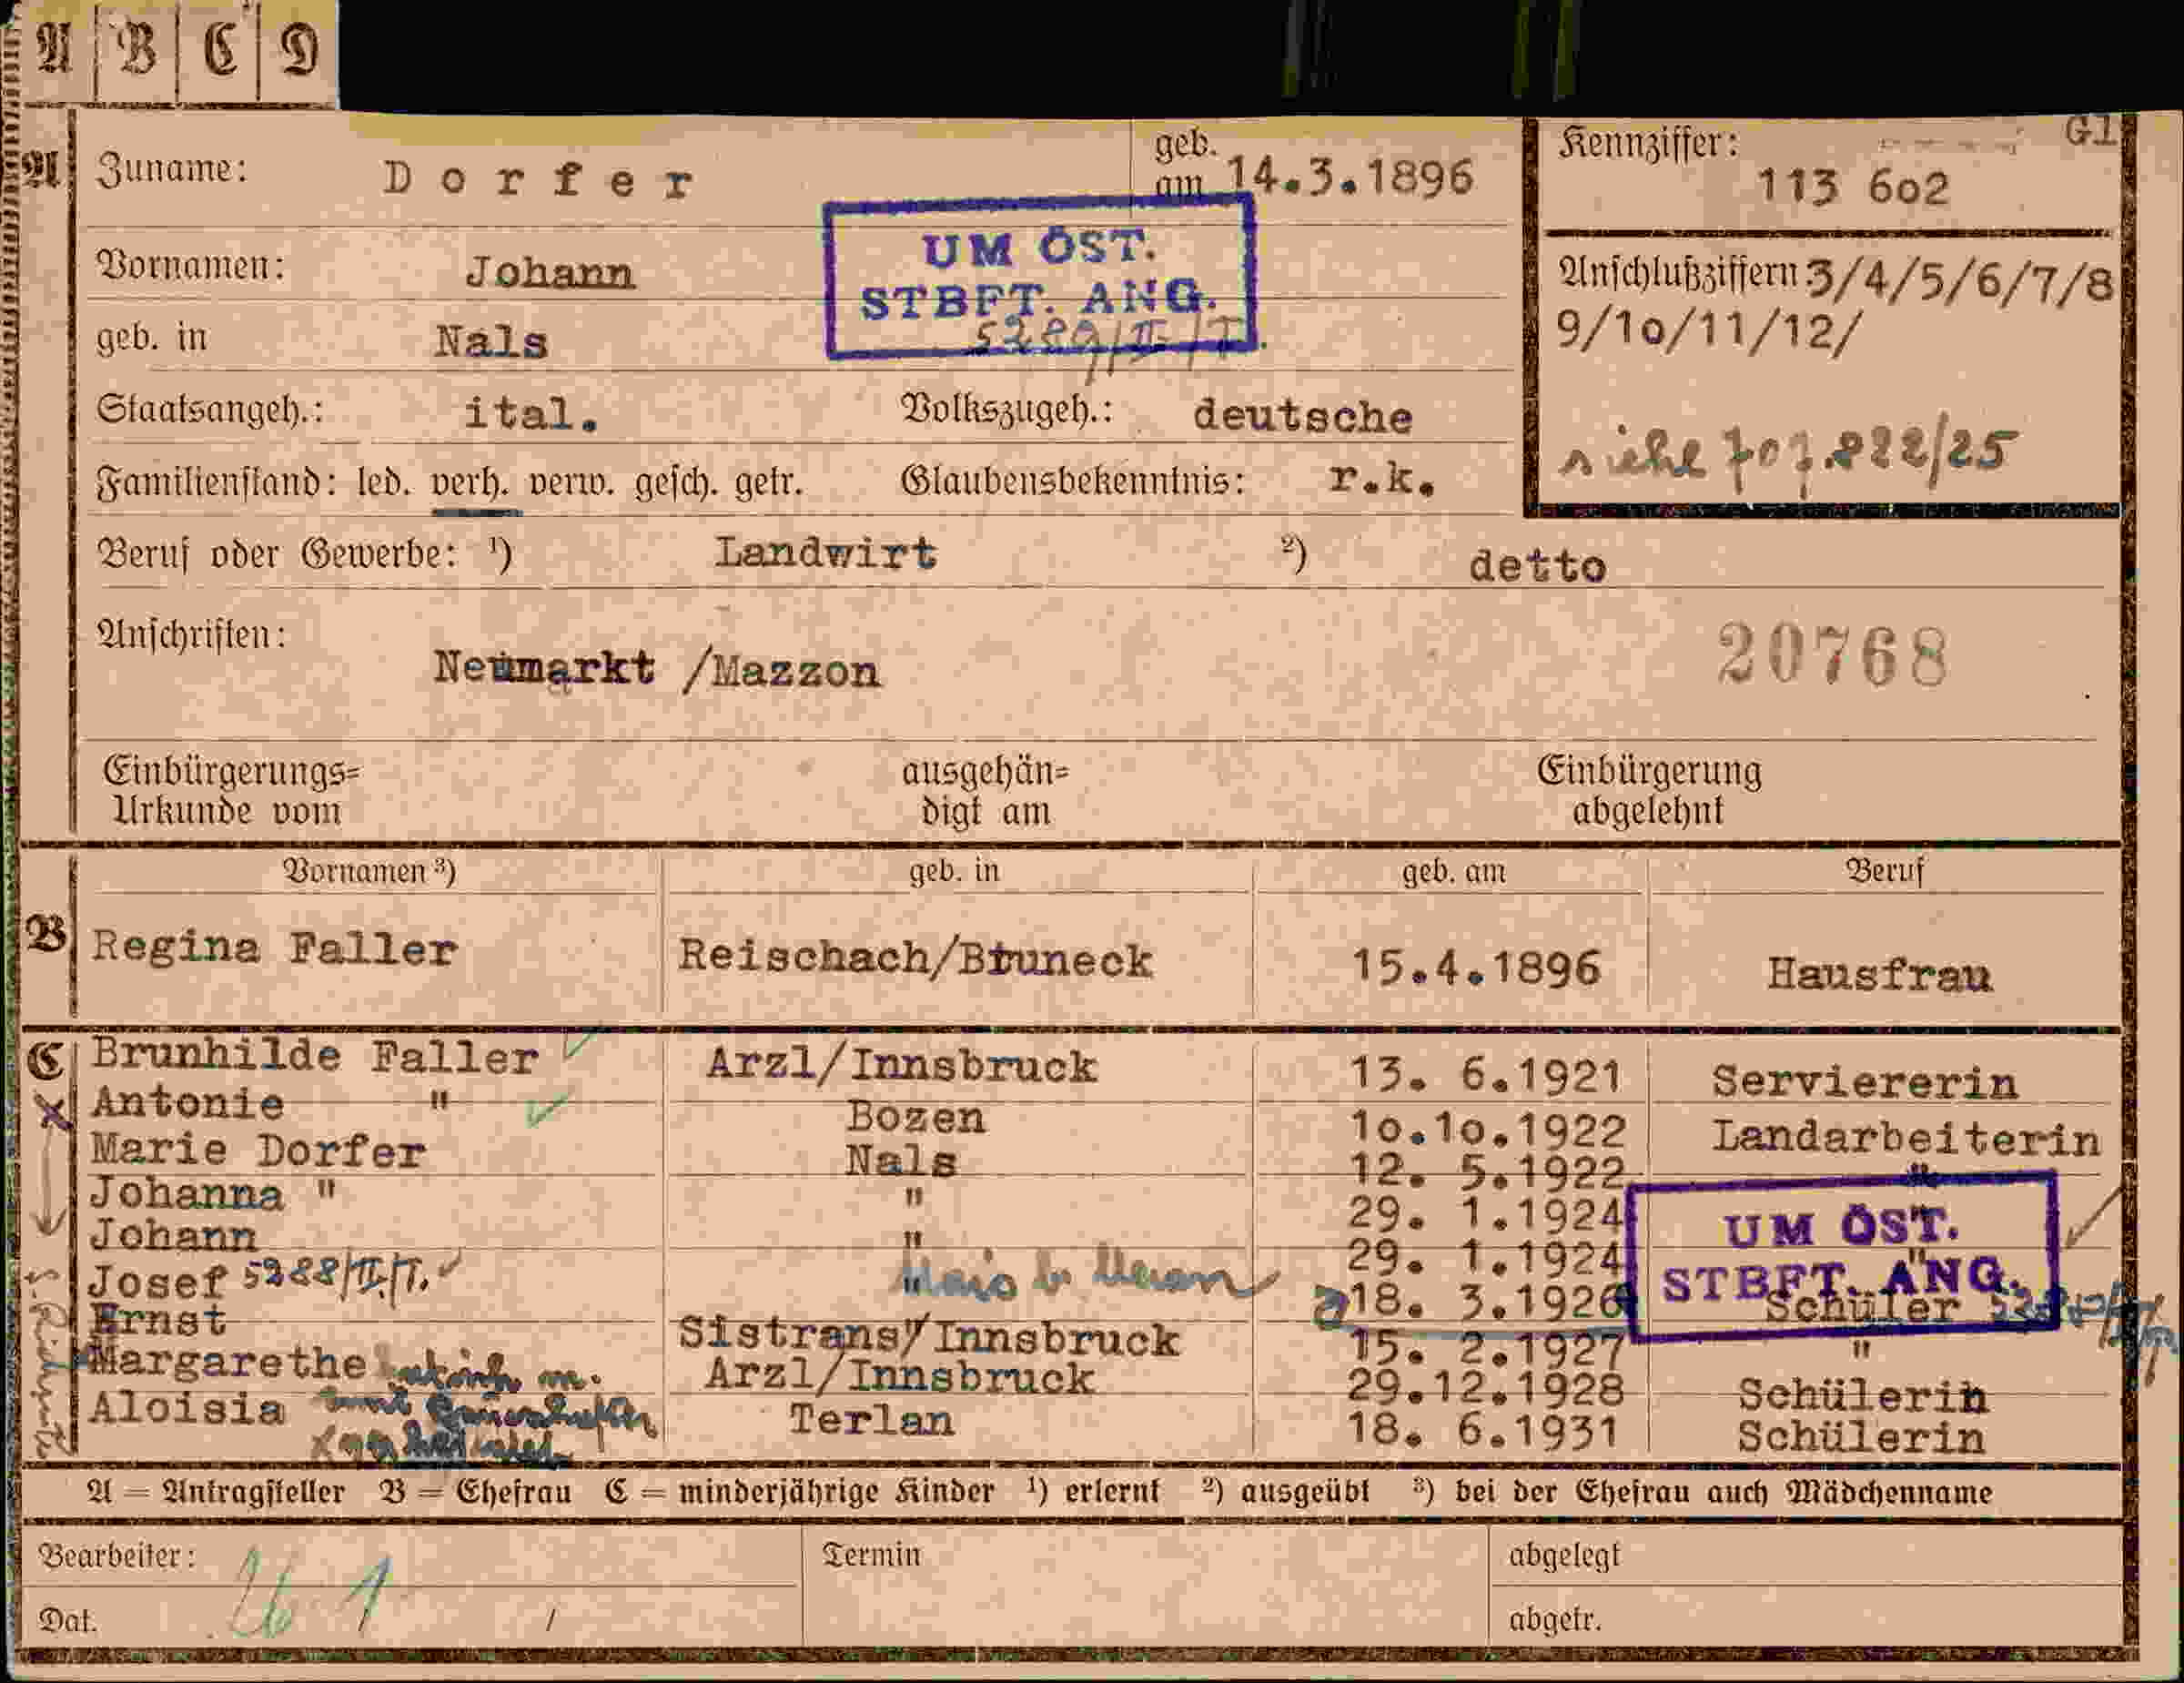 A B C D
A Zuname: Dorfer geb. am 14.3.1896
Kennziffer: G1
113 602
Vornamen: Johann
UM ÖST.
STBFT. ANG.
5289/II/T
Anschlußziffern 3/4/5/6/7/8
9/10/11/12/
geb. in Nals
Staatsangeh.: ital. Volkszugeh.: deutsche
siehe 707.222/25
Familienstand: led. verh. verw. gesch. getr. Glaubensbekenntnis: r.k.
Beruf oder Gewerbe: ¹) Landwirt ²) detto
Anschriften: Neumarkt /Mazzon 20768
Einbürgerungs= Urkunde vom
ausgehän= digt am
Einbürgerung abgelehnt
Vornamen ³) geb. in geb. am Beruf
B Regina Faller Reischach/Bruneck 15.4.1896 Hausfrau
C Brunhilde Faller Arzl/Innsbruck 13. 6.1921 Serviererin
Antonie " Bozen 10.10.1922 Landarbeiterin
Marie Dorfer Nals 12. 5.1922 "
Johanna " " 29. 1.1924
Johann " 29. 1.1924 "
UM ÖST.
STBFT. ANG.
Josef 5288/II/T. " Mais b. Meran 18. 3.1926 Schüler
Ernst " 15. 2.1927 "
Margarethe Sistrans/Innsbruck 29.12.1928 Schülerin
Arzl/Innsbruck
Aloisia Terlan 18. 6.1931 Schülerin
A = Antragsteller B = Ehefrau C = minderjährige Kinder ¹) erlernt ²) ausgeübt ³) bei der Ehefrau auch Mädchenname
Bearbeiter: Termin abgelegt
Dat. 26 1 / abgetr.